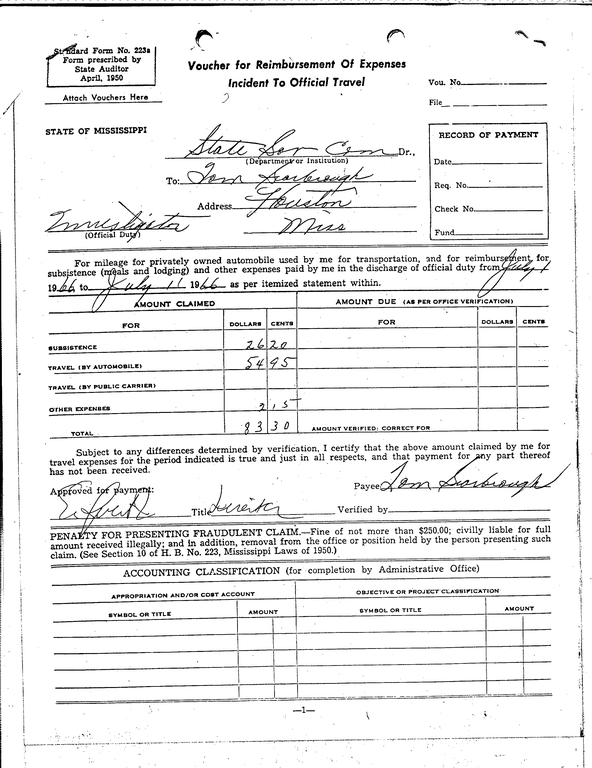 Standard Form No. 223a
Form prescribed by
State Auditor
April, 1950
Attach Vouchers Here
Voucher for Reimbursement Of Expenses
Incident To Official Travel
Vou. No.
File
STATE OF MISSISSIPPI
State Sov Com Dr.,
(Department or Institution)
To: Tom Scarbrough
Address Houston
Miss
Investigator
(Official Duty)
RECORD OF PAYMENT
Date
Req. No.
Check No.
Fund
For mileage for privately owned automobile used by me for transportation, and for reimbursement for
subsistence (meals and lodging) and other expenses paid by me in the discharge of official duty from July 1
1966 to July 11 1966 as per itemized statement within.
AMOUNT CLAIMED
AMOUNT DUE (AS PER OFFICE VERIFICATION)
FOR DOLLARS CENTS FOR DOLLARS CENTS
SUBSISTENCE 26 20
TRAVEL (BY AUTOMOBILE) 54 95
TRAVEL (BY PUBLIC CARRIER)
OTHER EXPENSES 2 15
TOTAL 83 30 AMOUNT VERIFIED: CORRECT FOR
Subject to any differences determined by verification, I certify that the above amount claimed by me for
travel expenses for the period indicated is true and just in all respects, and that payment for any part thereof
has not been received.
Approved for payment:
Payee Tom Scarbrough
Title Director Verified by
PENALTY FOR PRESENTING FRAUDULENT CLAIM.—Fine of not more than $250.00; civilly liable for full
amount received illegally; and in addition, removal from the office or position held by the person presenting such
claim. (See Section 10 of H. B. No. 223, Mississippi Laws of 1950.)
ACCOUNTING CLASSIFICATION (for completion by Administrative Office)
APPROPRIATION AND/OR COST ACCOUNT
OBJECTIVE OR PROJECT CLASSIFICATION
SYMBOL OR TITLE AMOUNT SYMBOL OR TITLE AMOUNT
—1—